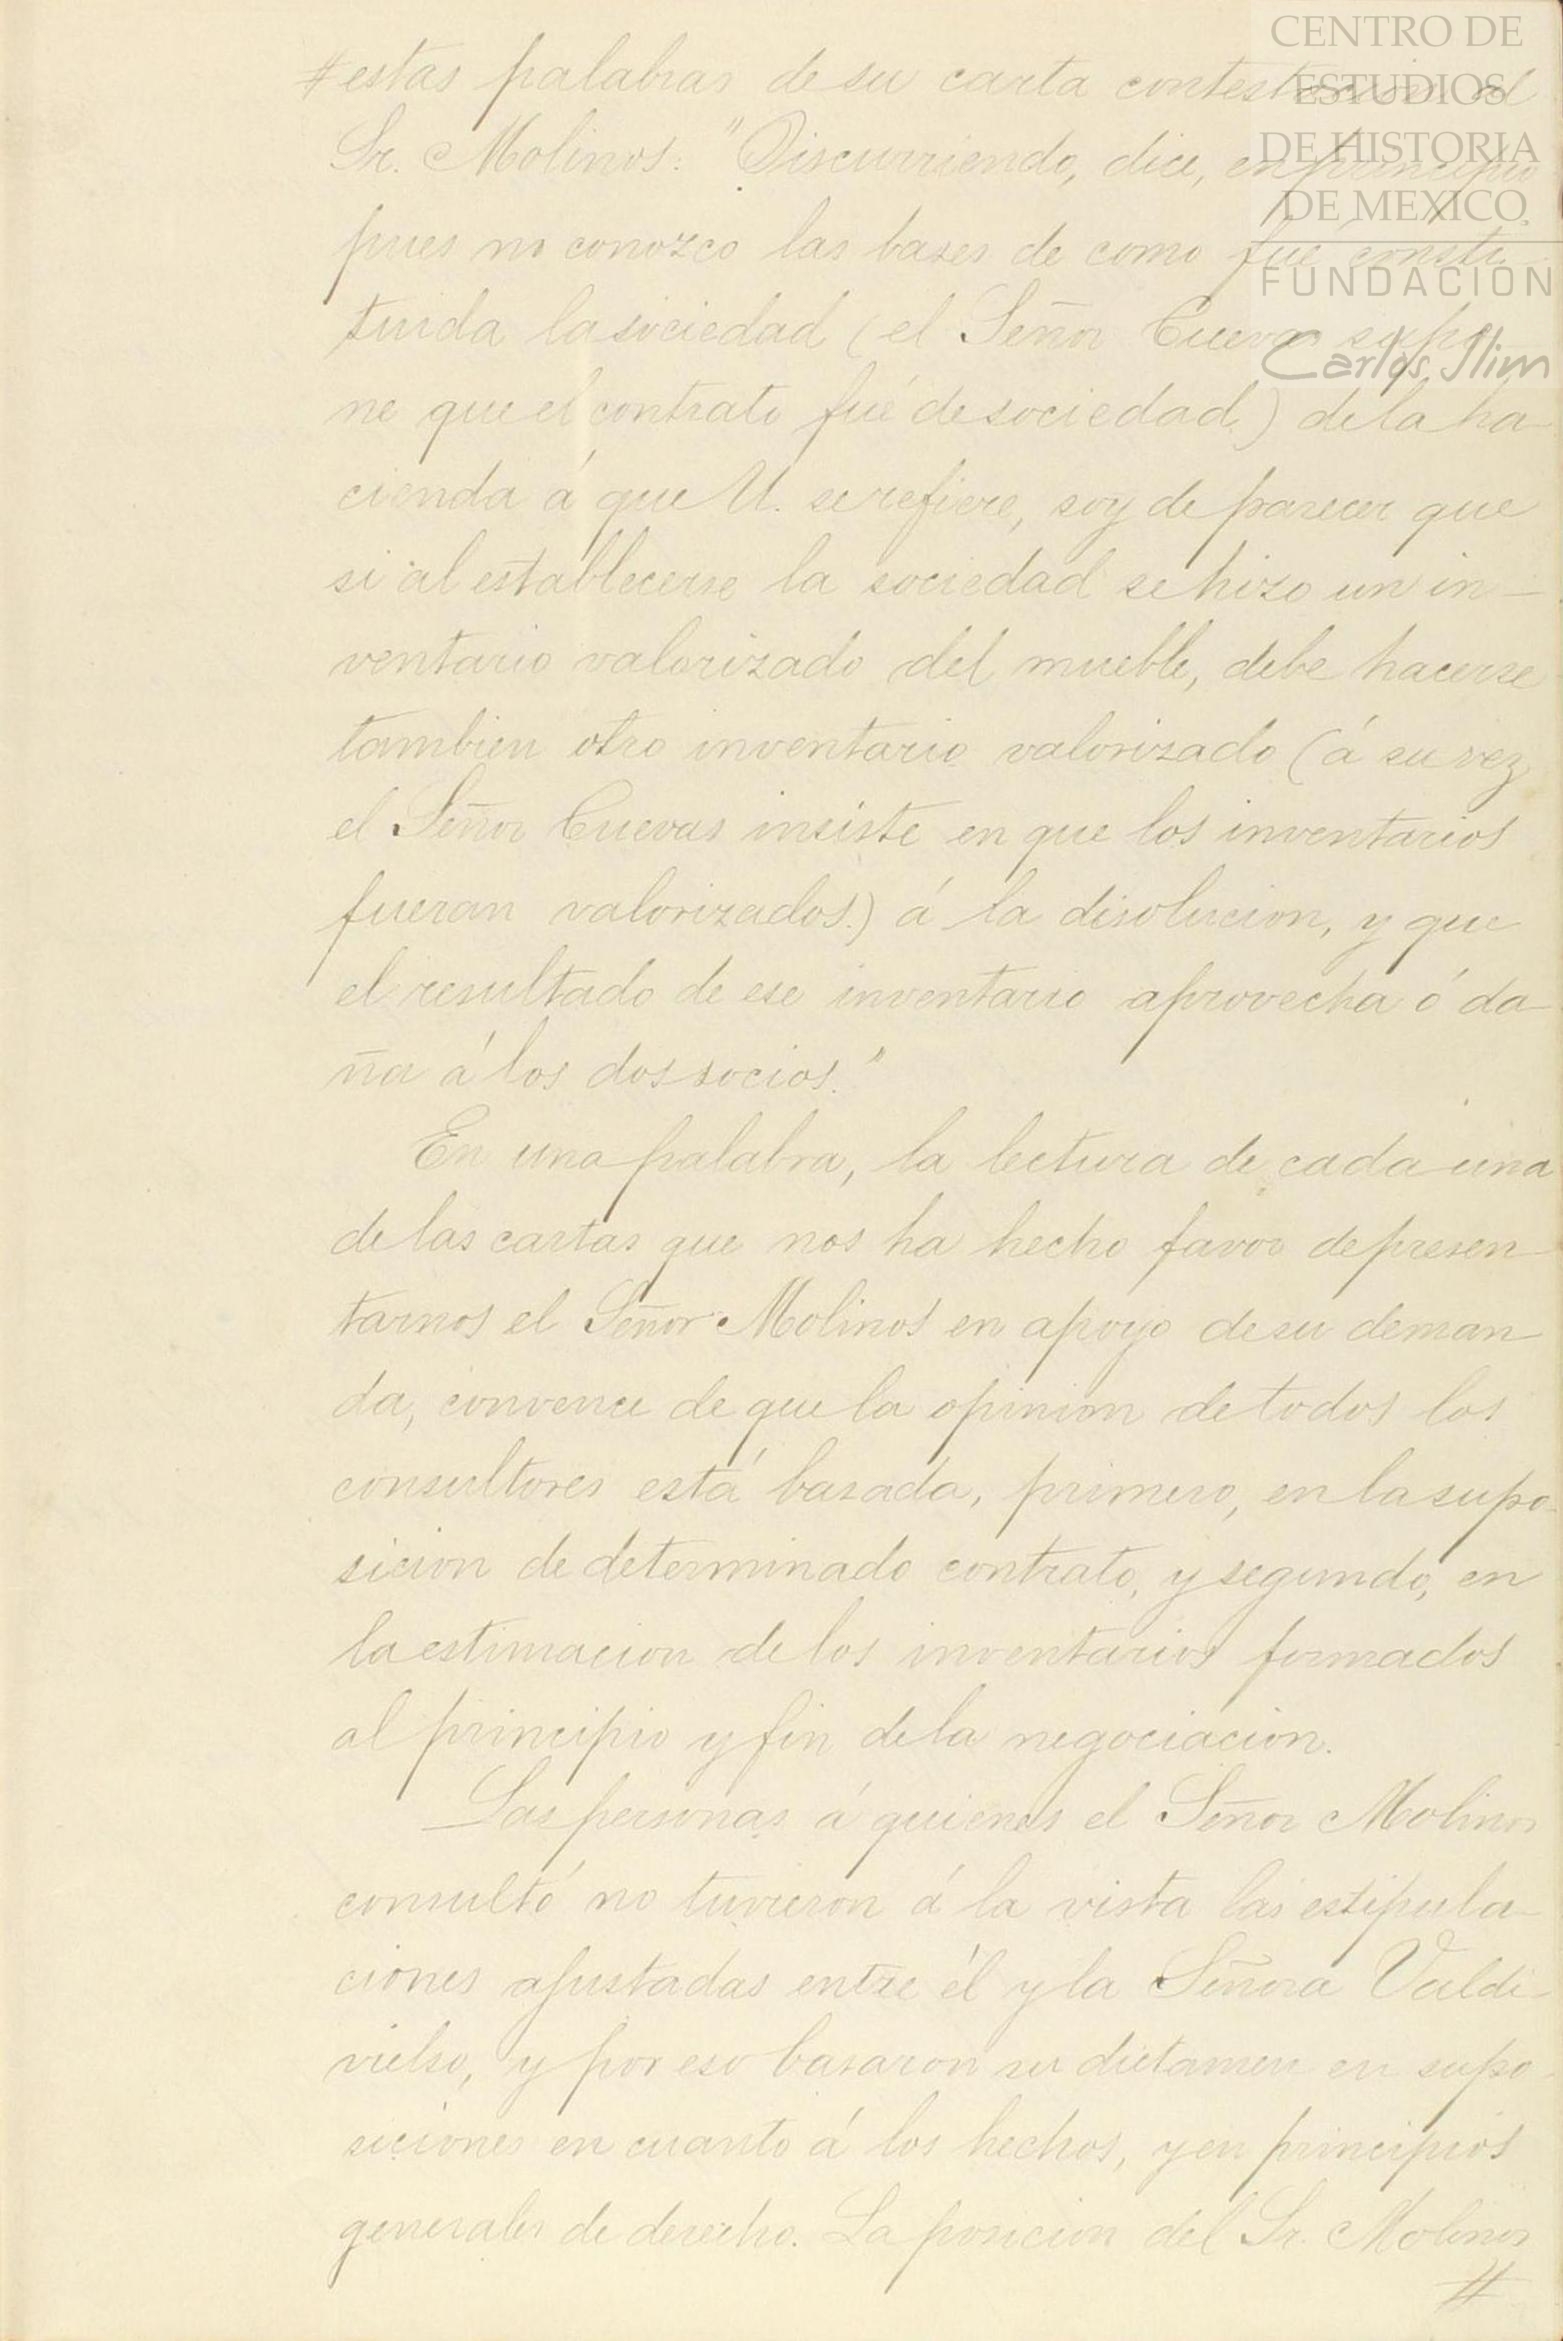 CENTRO DE
ESTUDIOS
DE HISTORIA
DE MEXICO
FUNDACIÓN
Carlos Slim
#estas palabras de su carta contestacion al
Sr. Molinos: "Discurriendo, dice, en principio
pues no conozco las bases de como fué consti-
tuida la sociedad (el Señor Cuevas supo-
ne que el contrato fué de sociedad) de la ha-
cienda á que U. se refiere, soy de parecer que
si al establecerse la sociedad se hizo un in-
ventario valorizado del mueble, debe hacerse
tambien otro inventario valorizado (á su vez
el Señor Cuevas insiste en que los inventarios
fueran valorizados.) á la disolucion, y que
el resultado de ese inventario aprovecha ó da-
ña á los dos socios."
En una palabra, la lectura de cada una
de las cartas que nos ha hecho favor de presen-
tarnos el Señor Molinos en apoyo de su deman-
da, convence de que la opinion de todos los
consultores está basada, primero, en la supo-
sicion de determinado contrato, y segundo, en
la estimacion de los inventarios formados
al principio y fin de la negociacion.
Las personas á quienes el Señor Molinos
consultó no tuvieron á la vista las estipula-
ciones ajustadas entre él y la Señora Valdi-
vielso, y por eso basaron su dictamen en supo-
siciones en cuanto á los hechos, y en principios
generales de derecho. La posicion del Sr. Molinos
#